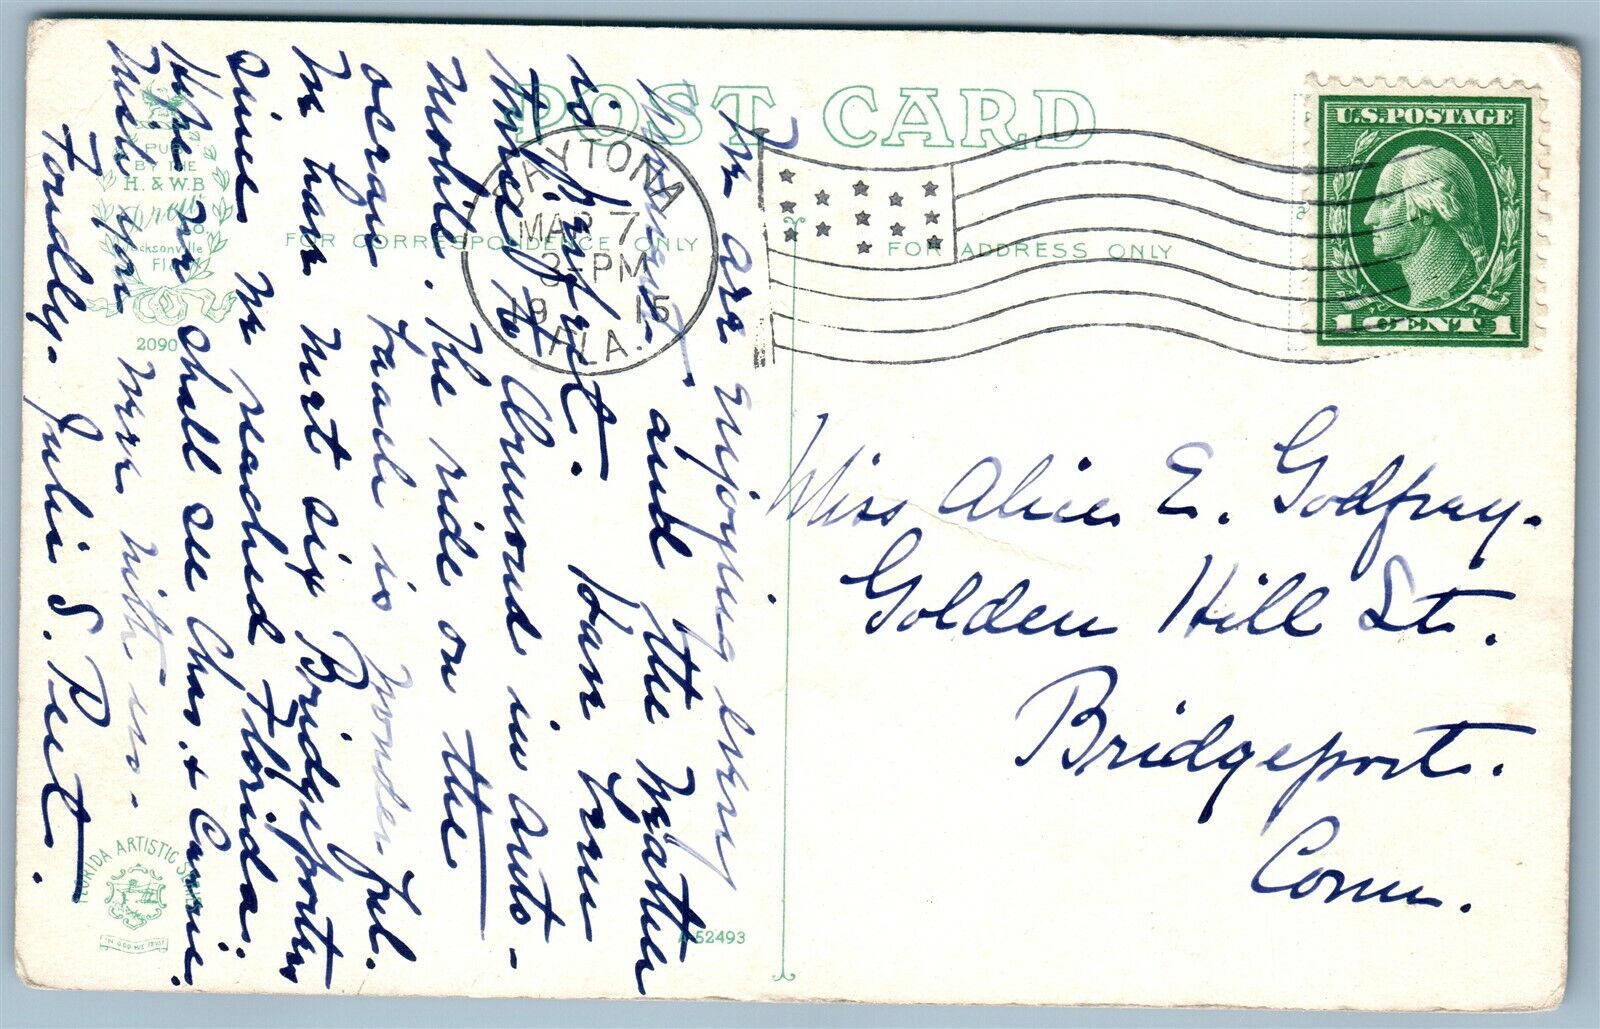 POST CARD
FOR CORRESPONDENCE ONLY
FOR ADDRESS ONLY
DAYTONA
MAR 7
3-PM
1915
FLA.
U.S.POSTAGE
1 CENT 1
PUB.
BY THE
H. & W.B
Drew
Co.
Jacksonville
Fla.
2090
FLORIDA ARTISTIC SERIES
IN GOD WE TRUST
A-52493
We are enjoying every
minute and the weather
is perfect. Have been
time to Ormond in auto-
mobile. The ride on the
ocean beach is wonderful.
We have met six Bridgeporters
since we reached Florida.
Hope we shall see Chas. & Carrie.
Wish you were with us.
Fondly. Julie S. Peet.
Miss Alice E. Godfrey.
Golden Hill St.
Bridgeport.
Conn.